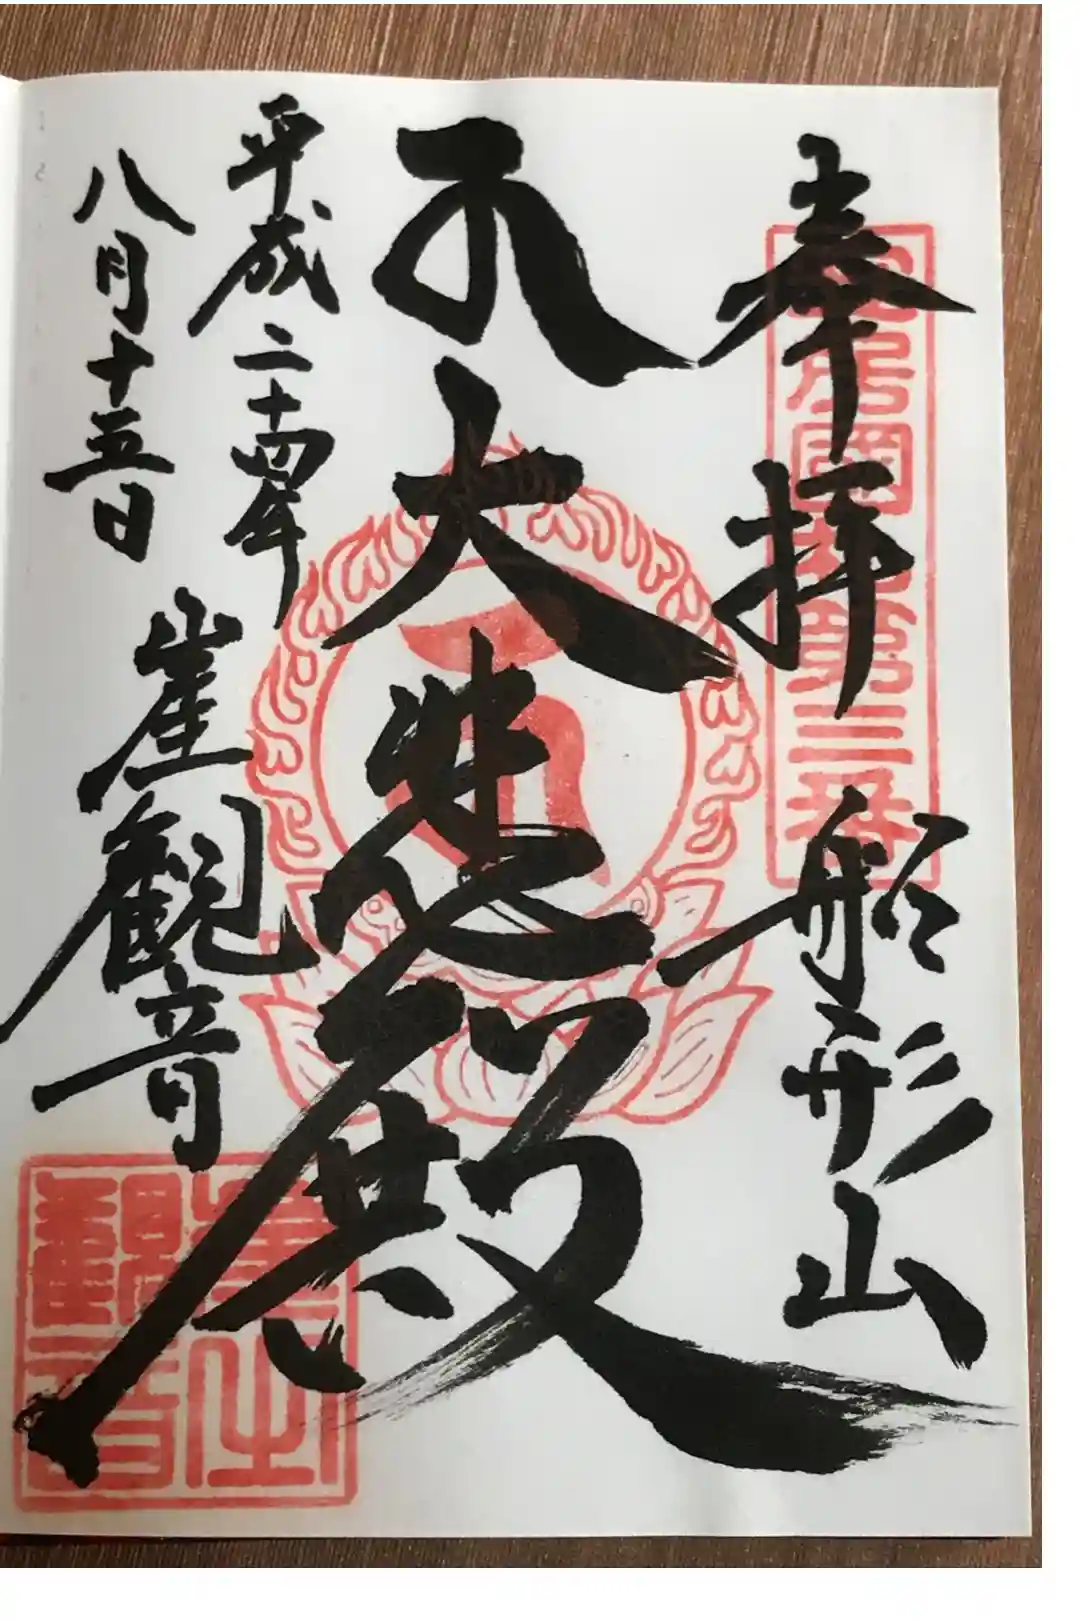 奉拝　船形山
安房國札第三番
大悲殿
平成二十四年
八月十五日
崖觀音
崖之
觀音